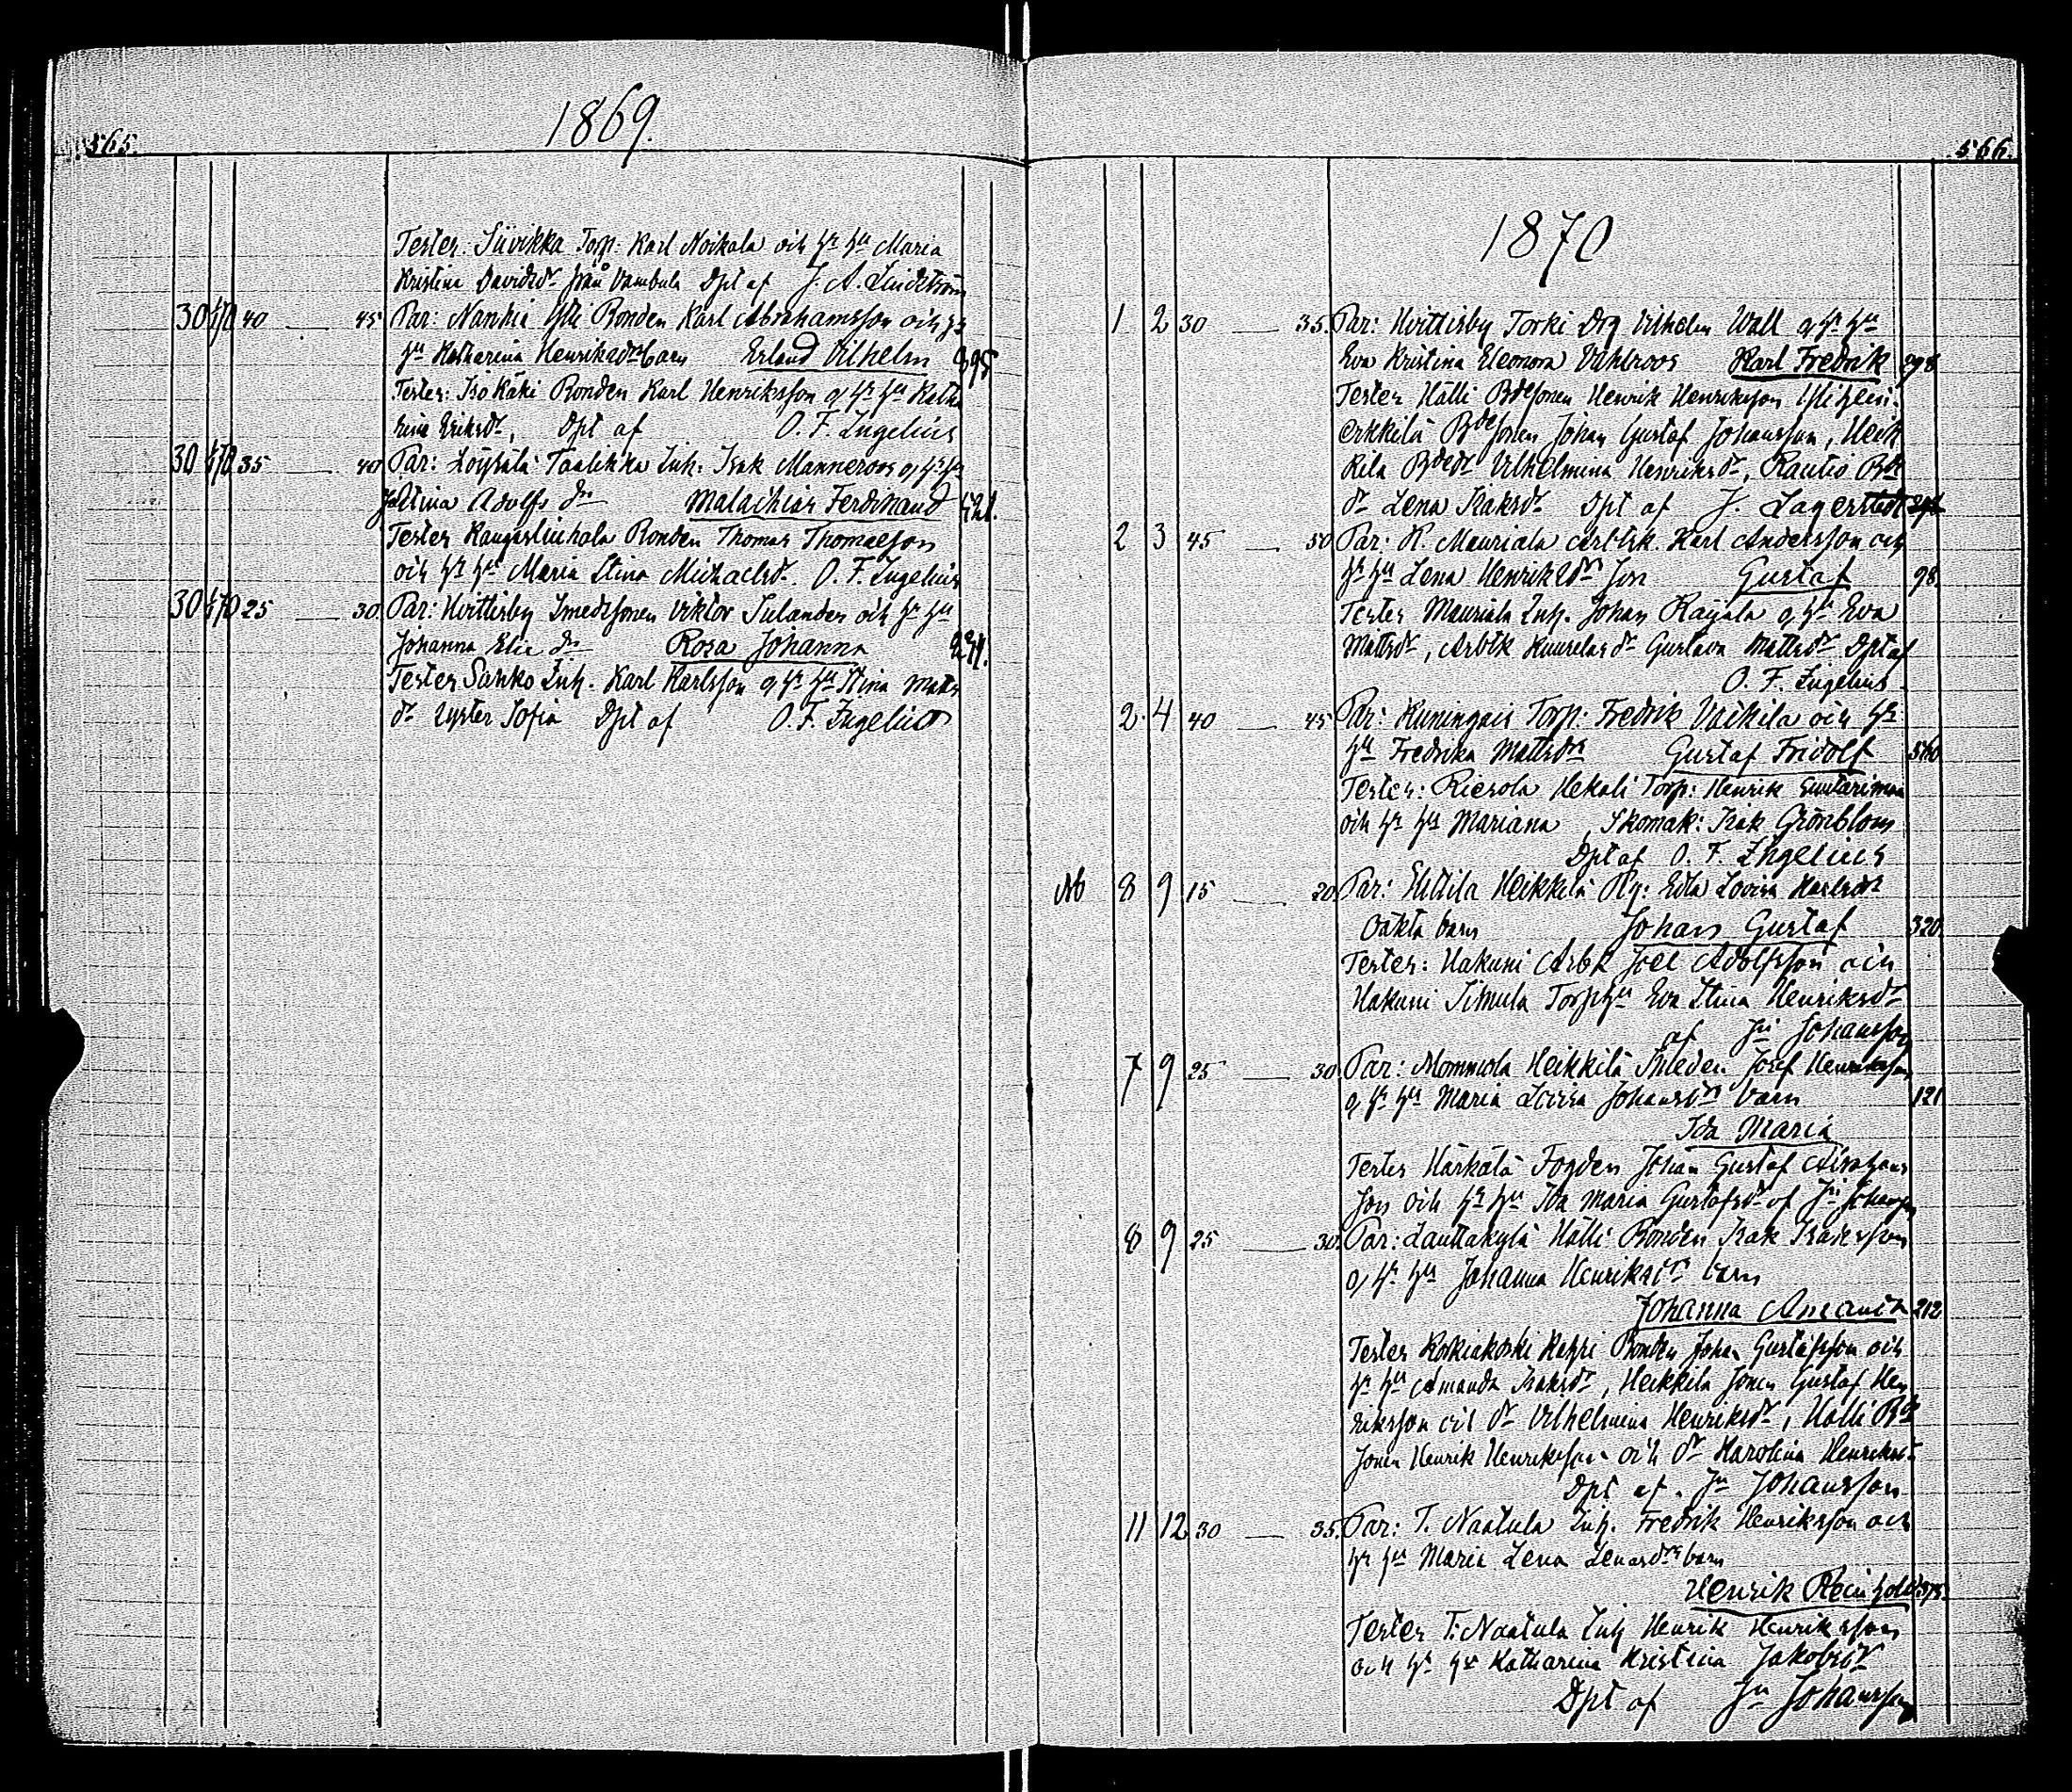 565.
1869.
Tester. Siivikka Torp: Karl Noikala och hs hu Maria
Kristina Davidsdr från Vambula Dpt af J. A. Lindström
30 1/70 40 — 45 Par: Nanhia Ylli Bonden Karl Abrahamsson och hs
hu Katharina Henriksdrs barn Erland Vilhelm 395
Tester: Iso Käki Bonden Karl Henriksson o hs hu Katha
rina Eriksdr, Dpt af O. F. Ingelius
30 1/70 35 — 40 Par: Loysälä Taalikka Inh. Isak Manneroos o hs hu
Justina Adolfs dr Malachias Ferdinand 421.
Tester Kangas Bonden Thomas Thomasson
och hs hu Maria Stina Michaelsdr. O. F. Ingelius
30 1/70 25 — 30. Par: Hvittisby Smedssonen Viktor Sulander och hs hu
Johanna Elie dr Rosa Johanna 221.
Tester Sanko Inh. Karl Karlsson o hs hu Stina Matts
dr Syster Sofia Dpt af O. F. Ingelius
566.
1870
1 2 30 — 35. Par: Hvittisby Torki Drg Vilhelm Wall o hs hu
Eva Kristina Eleonora Vahlroos Karl Fredrik 298
Tester Hälli Bdesonen Henrik Henriksson
erkkilä Bdesonen Johan Gustaf Johansson, Heik
kilä Bdedr Vilhelmina Henriksdr, Rautio Bde
dr Lena Isaksdr Dpt af J. Lagerstedt
2 3 45 — 50 Par: K. Mauriala Arbtsk. Karl Andersson och
hs hu Lena Henriksdrs son Gustaf 98.
Tester Mauriala Inh. Johan Rajala o hu Eva
Mattsdr, Arbtk dr Gustava Mattsdr Dpt af
O. F. Ingelius
2. 4 40 — 45 Par: Kuningais Torp: Fredrik Vaikila och hs
hu Fredrika Mattsdrs Gustaf Fridolf 560
Tester: Riesola Hekali Torp: Henrik
och hs hu Mariana, Skomak: Isak Grönblom
Dpt af O. F. Ingelius
8 9 15 — 20 Par: Heikkilä Pig: Edla Lovisa Karlsdrs
Oäkta barn Johan Gustaf 320.
Tester: Hakuni Arbk Joel Adolfsson och
Hakuni Simula Torphu Eva Stina Henriksdr
af Jn Johansson
7 9 25 — 30 Par: Mommola Heikkilä Josef Henriksson
o hs hu Maria Lovisa Johansdrs barn 121
Ida Maria
Tester Härkälä Fogden Johan Gustaf Abraham
son och hs hu Ida Maria Gustafsdr af Jn Johansson
8 9 25 — 30. Par: Lauttakylä Hälli Bonden Isak Isaksson
o hs hu Johanna Henriksdrs barn
Johanna Amanda 212
Tester Koskiakoski Bonden Johan Gustafsson och
hs hu Amanda Isaksdr, Heikkilä sonen Gustaf Hen
riksson och dr Vilhelmina Henriksdr, Hälli Bde
sonen Henrik Henriksson och dr Karolina Henriksdr
Dpt af. Jn Johansson
11 12 30 — 35. Par: T. Naatula Inh. Fredrik Henriksson och
hs hu Maria Lena Lenardsdrs barn
Henrik Reinhold
Tester T. Naatula Inh Henrik Henriksson
och hs hu Katharina Kristina Jakobsdr
Dpt af Jn Johansson